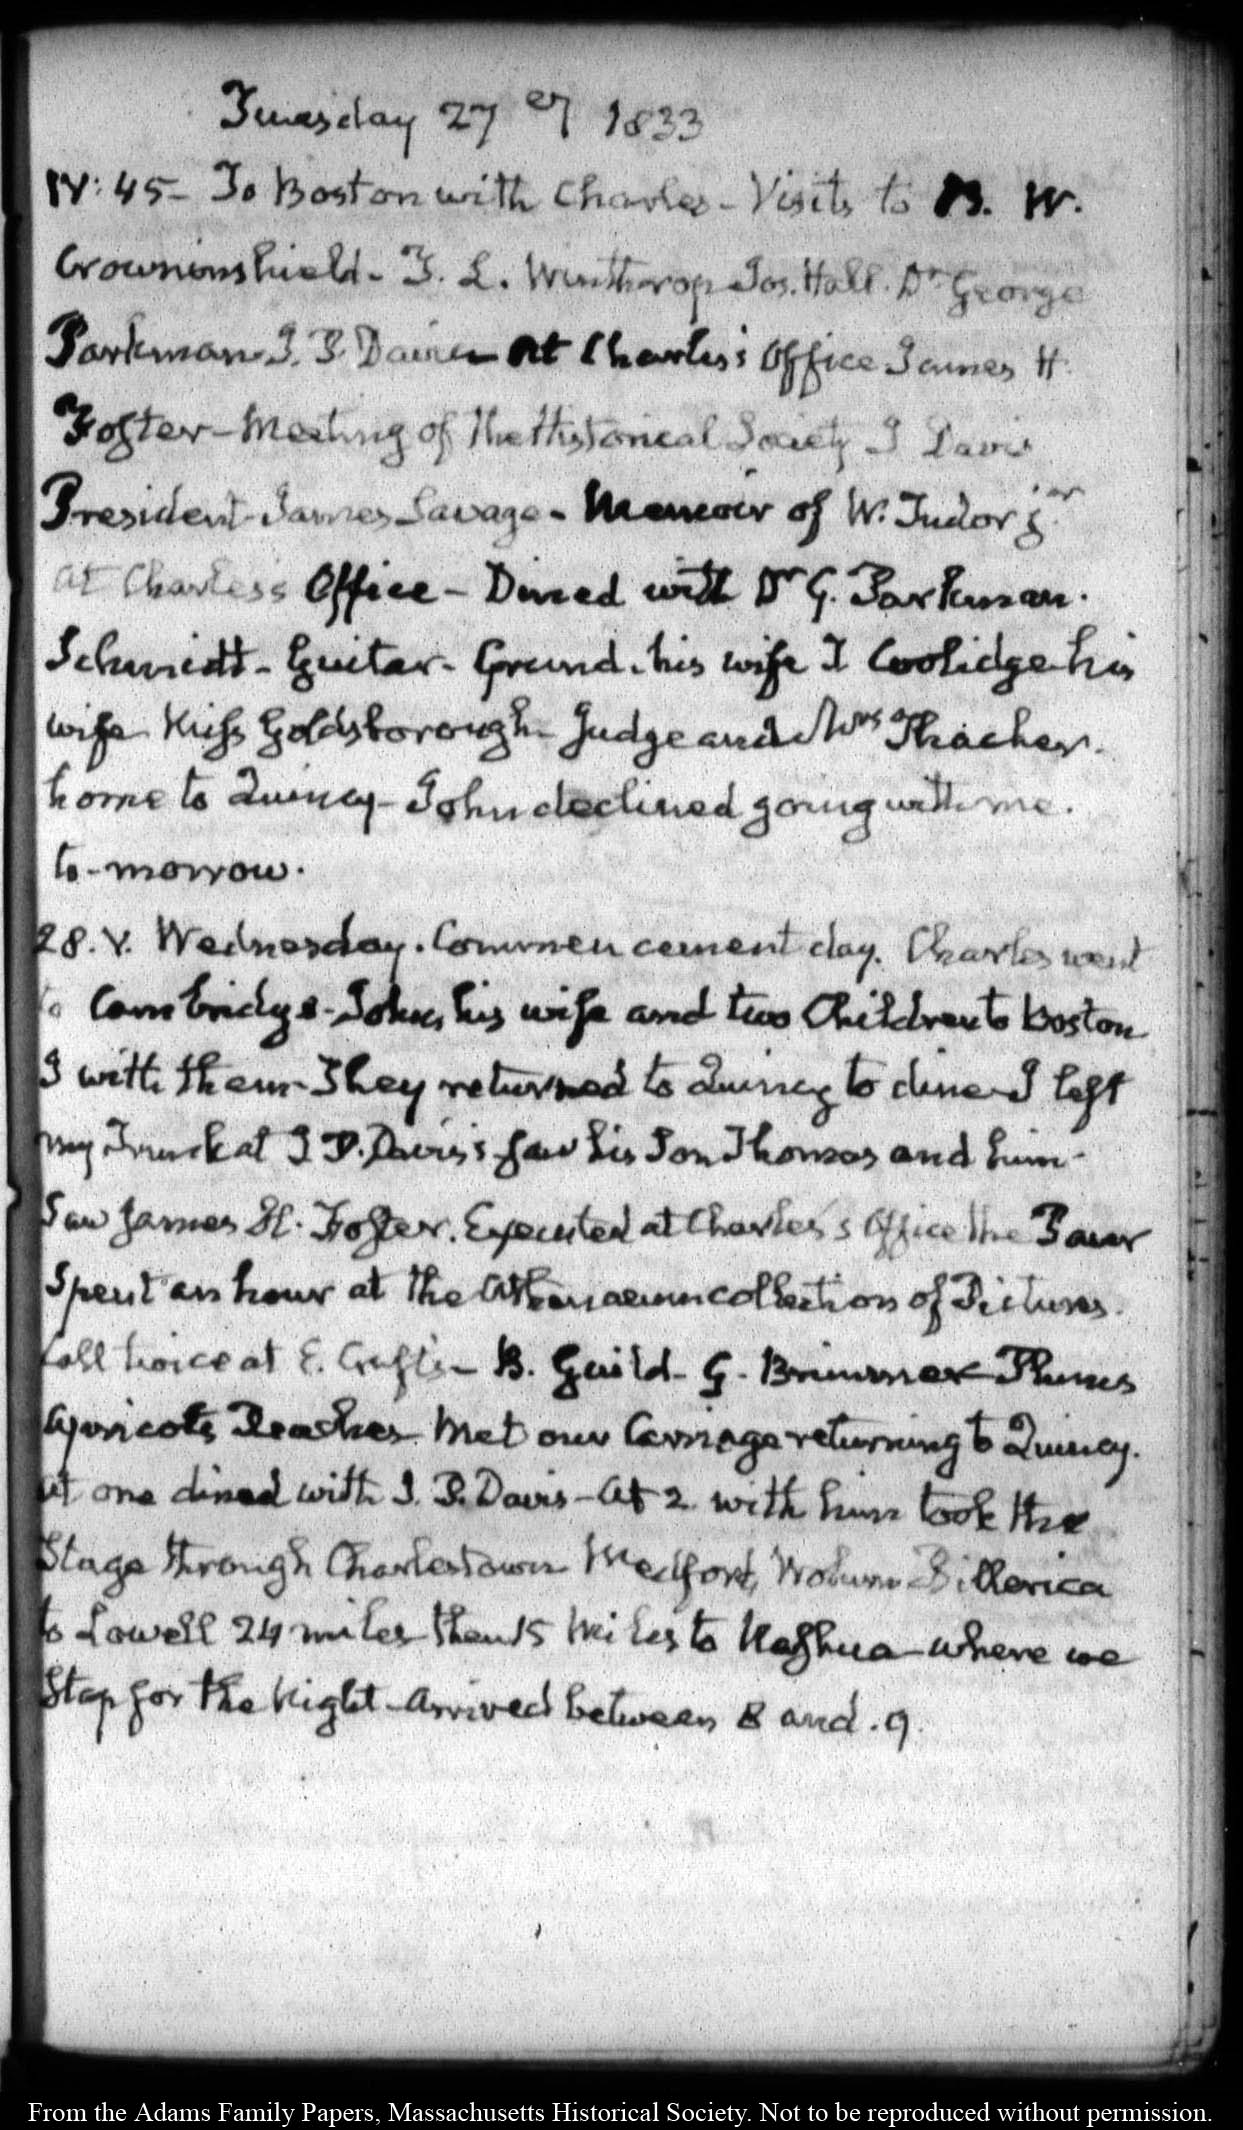 Tuesday 27 1833
IV: 45 - To Boston with Charles - Visits to B. W.
Crowninshield - T. L. Winthrop Jos. Hall. Dr George
Parkman I. P. Davis - At Charles's Office James H.
Foster - Meeting of the Historical Society J Davis
President - James Savage - Memoir of W. Tudor jr
at Charles's Office - Dined with Dr G. Parkman.
Schmidt - Guitar - Grund. his wife J Coolidge his
wife Miss Goldsborough - Judge and Mrs Thacher.
home to Quincy - John declined going with me.
to-morrow.
28. V. Wednesday. Commencement day. Charles went
to Cambridge - John, his wife and two Children to Boston
I with them - They returned to Quincy to dine - I left
my Trunk at I P. Davis's saw his Son Thomas and him -
Saw James H. Foster. Executed at Charles's Office the
Spent an hour at the Athenaeum collection of Pictures.
Call twice at E. Crafts - B. Guild - G. Brimmer - Plums
Apricots Peaches - Met our Carriage returning to Quincy.
at one dined with I. P. Davis - At 2 with him took the
Stage through Charlestown Medford, Woburn Billerica
to Lowell 24 miles then 15 Miles to Nashua - where we
Stop for the Night - Arrived between 8 and 9.
From the Adams Family Papers, Massachusetts Historical Society. Not to be reproduced without permission.